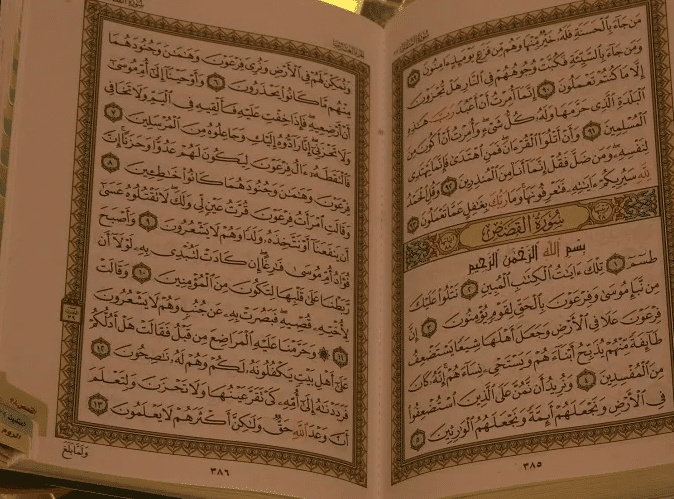 مَن جَاءَ بِالْحَسَنَةِ فَلَهُ خَيْرٌ مِّنْهَا وَهُم مِّن فَزَعٍ يَوْمَئِذٍ ءَامِنُونَ ٨٩
وَمَن جَاءَ بِالسَّيِّئَةِ فَكُبَّتْ وُجُوهُهُمْ فِي النَّارِ هَلْ تُجْزَوْنَ
إِلَّا مَا كُنتُمْ تَعْمَلُونَ ٩٠ إِنَّمَا أُمِرْتُ أَنْ أَعْبُدَ رَبَّ هَٰذِهِ
الْبَلْدَةِ الَّذِي حَرَّمَهَا وَلَهُ كُلُّ شَيْءٍ وَأُمِرْتُ أَنْ أَكُونَ مِنَ
الْمُسْلِمِينَ ٩١ وَأَنْ أَتْلُوَا الْقُرْءَانَ فَمَنِ اهْتَدَىٰ فَإِنَّمَا يَهْتَدِي
لِنَفْسِهِ وَمَن ضَلَّ فَقُلْ إِنَّمَا أَنَا مِنَ الْمُنذِرِينَ ٩٢ وَقُلِ الْحَمْدُ
لِلَّهِ سَيُرِيكُمْ ءَايَٰتِهِ فَتَعْرِفُونَهَا وَمَا رَبُّكَ بِغَٰفِلٍ عَمَّا تَعْمَلُونَ ٩٣
سُورَةُ الْقَصَصِ
بِسْمِ اللَّهِ الرَّحْمَٰنِ الرَّحِيمِ
طسٓمٓ ١ تِلْكَ ءَايَٰتُ الْكِتَٰبِ الْمُبِينِ ٢ نَتْلُوا عَلَيْكَ
مِن نَّبَإِ مُوسَىٰ وَفِرْعَوْنَ بِالْحَقِّ لِقَوْمٍ يُؤْمِنُونَ ٣ إِنَّ
فِرْعَوْنَ عَلَا فِي الْأَرْضِ وَجَعَلَ أَهْلَهَا شِيَعًا يَسْتَضْعِفُ
طَائِفَةً مِّنْهُمْ يُذَبِّحُ أَبْنَاءَهُمْ وَيَسْتَحْيِ نِسَاءَهُمْ إِنَّهُ كَانَ
مِنَ الْمُفْسِدِينَ ٤ وَنُرِيدُ أَن نَّمُنَّ عَلَى الَّذِينَ اسْتُضْعِفُوا
فِي الْأَرْضِ وَنَجْعَلَهُمْ أَئِمَّةً وَنَجْعَلَهُمُ الْوَٰرِثِينَ ٥
٣٨٥
وَنُمَكِّنَ لَهُمْ فِي الْأَرْضِ وَنُرِيَ فِرْعَوْنَ وَهَٰمَٰنَ وَجُنُودَهُمَا
مِنْهُم مَّا كَانُوا يَحْذَرُونَ ٦ وَأَوْحَيْنَا إِلَىٰ أُمِّ مُوسَىٰ
أَنْ أَرْضِعِيهِ فَإِذَا خِفْتِ عَلَيْهِ فَأَلْقِيهِ فِي الْيَمِّ وَلَا تَخَافِي
وَلَا تَحْزَنِي إِنَّا رَادُّوهُ إِلَيْكِ وَجَاعِلُوهُ مِنَ الْمُرْسَلِينَ ٧
فَالْتَقَطَهُ ءَالُ فِرْعَوْنَ لِيَكُونَ لَهُمْ عَدُوًّا وَحَزَنًا إِنَّ
فِرْعَوْنَ وَهَٰمَٰنَ وَجُنُودَهُمَا كَانُوا خَٰطِـِٔينَ ٨
وَقَالَتِ امْرَأَتُ فِرْعَوْنَ قُرَّتُ عَيْنٍ لِّي وَلَكَ لَا تَقْتُلُوهُ عَسَىٰ
أَن يَنفَعَنَا أَوْ نَتَّخِذَهُ وَلَدًا وَهُمْ لَا يَشْعُرُونَ ٩ وَأَصْبَحَ
فُؤَادُ أُمِّ مُوسَىٰ فَٰرِغًا إِن كَادَتْ لَتُبْدِي بِهِ لَوْلَا أَن
رَّبَطْنَا عَلَىٰ قَلْبِهَا لِتَكُونَ مِنَ الْمُؤْمِنِينَ ١٠ وَقَالَتْ
لِأُخْتِهِ قُصِّيهِ فَبَصُرَتْ بِهِ عَن جُنُبٍ وَهُمْ لَا يَشْعُرُونَ
١١ ۞ وَحَرَّمْنَا عَلَيْهِ الْمَرَاضِعَ مِن قَبْلُ فَقَالَتْ هَلْ أَدُلُّكُمْ
عَلَىٰ أَهْلِ بَيْتٍ يَكْفُلُونَهُ لَكُمْ وَهُمْ لَهُ نَٰصِحُونَ ١٢
فَرَدَدْنَٰهُ إِلَىٰ أُمِّهِ كَيْ تَقَرَّ عَيْنُهَا وَلَا تَحْزَنَ وَلِتَعْلَمَ
أَنَّ وَعْدَ اللَّهِ حَقٌّ وَلَٰكِنَّ أَكْثَرَهُمْ لَا يَعْلَمُونَ ١٣
وَلَمَّا بَلَغَ
٣٨٦